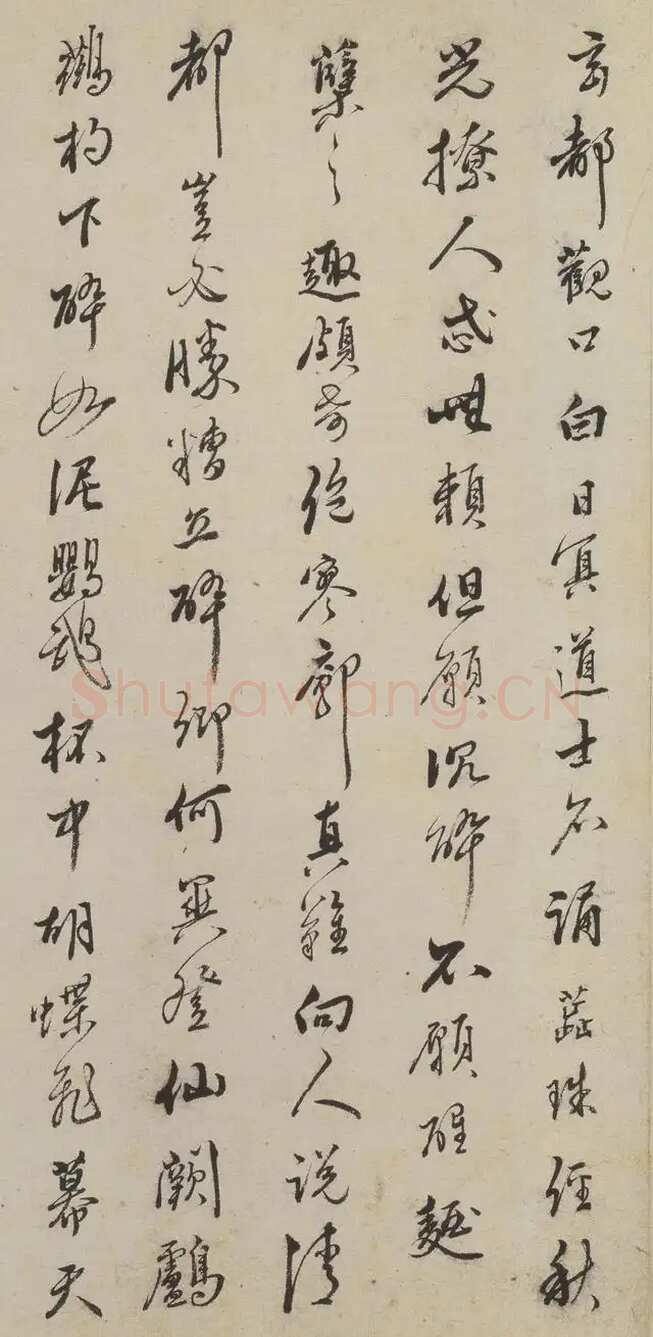 玄都觀口白日冥道士不誦蕋珠經秋
光撩人感無賴但願沉醉不願醒麴
糵之趣頗奇絶寥廓真難向人說清
都豈必勝糟丘醉鄉何異登仙闕鸕
鷀杓下醉如泥鸚鵡杯中胡蝶飛幕天
Shufawang.CN